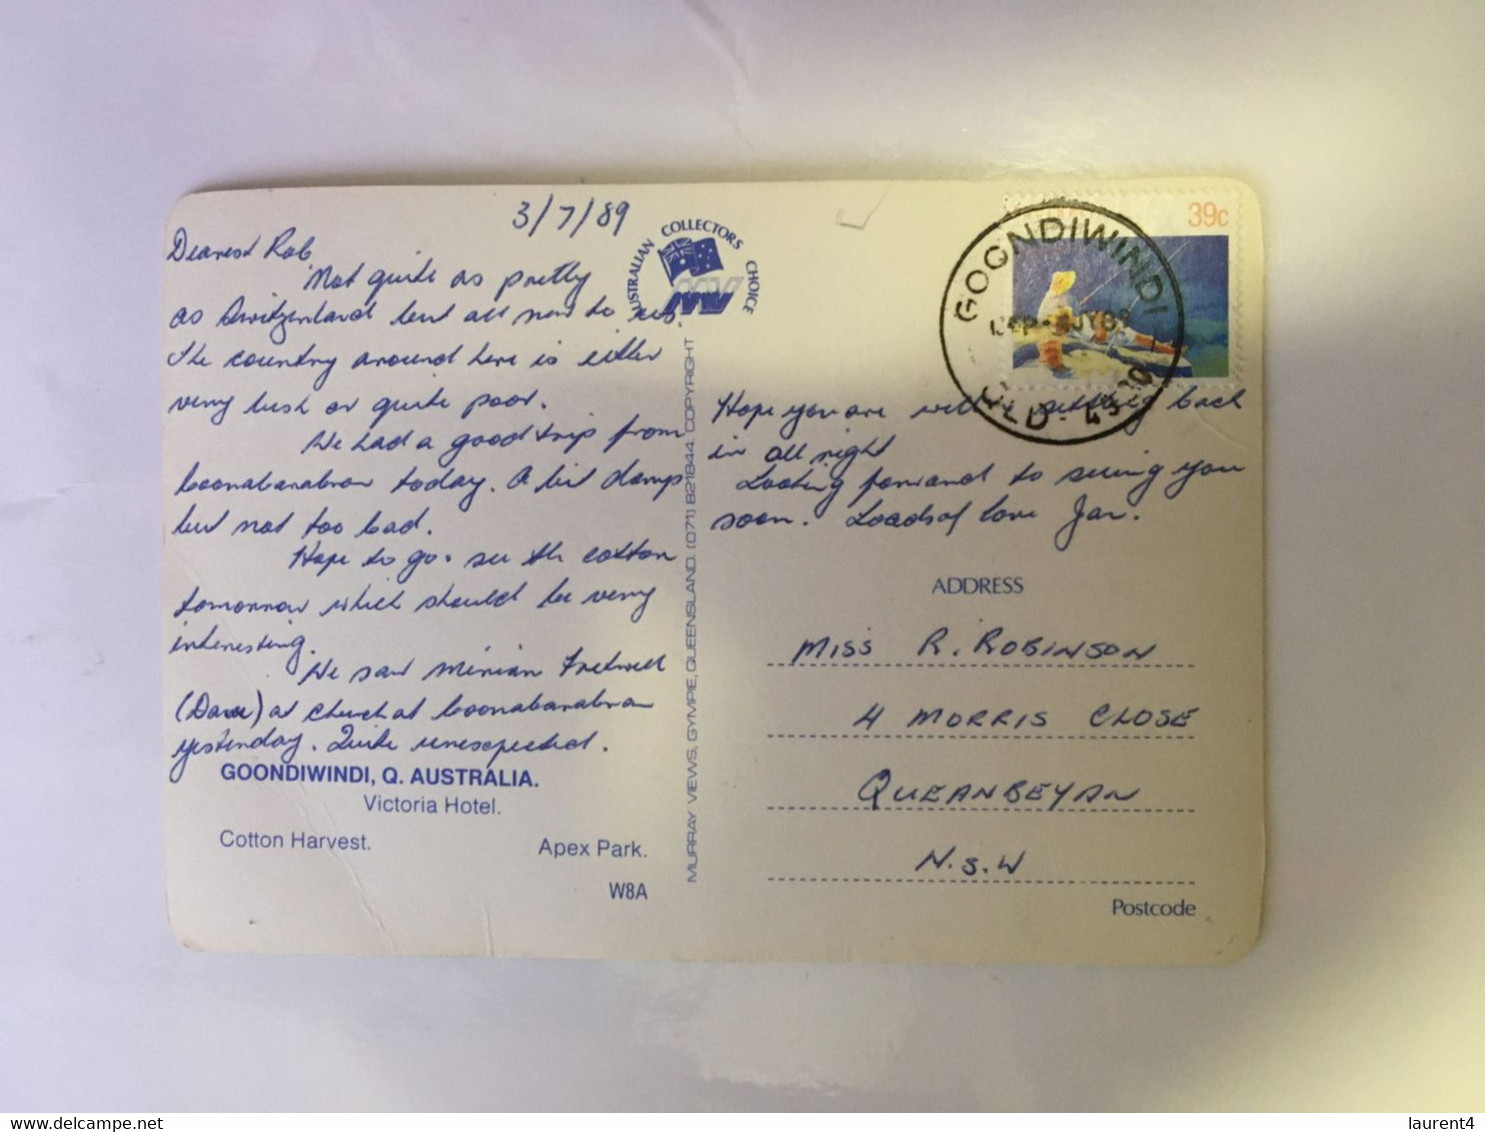 3/7/89
Dearest Rob
Not quite as pretty
as Switzerland but all new to us.
The country around here is either
very lush or quite poor.
We had a good trip from
Coonabarabran today. A bit damp
but not too bad.
Hope to go & see the cotton
tomorrow which should be very
interesting.
We saw Miriam Fretwell
(Dave) at church at Coonabarabran
yesterday. Quite unexpected.
GOONDIWINDI, Q. AUSTRALIA.
Victoria Hotel.
Cotton Harvest.
Apex Park.
W8A
AUSTRALIAN COLLECTORS CHOICE
MV
MURRAY VIEWS, GYMPIE, QUEENSLAND. (071) 821844. COPYRIGHT
39c
GOONDIWINDI
QLD. 4390
Hope you are well & settling back
in all right
Looking forward to seeing you
soon. Loads of love Jan.
ADDRESS
MISS R. ROBINSON
4 MORRIS CLOSE
QUEANBEYAN
N.S.W
Postcode
laurent4